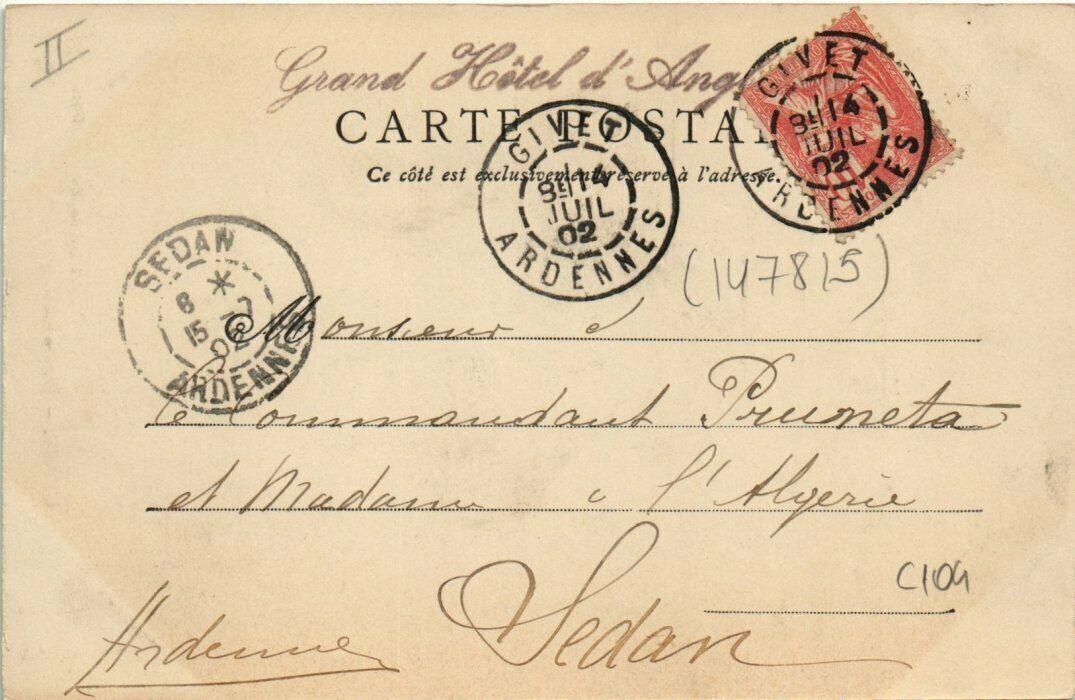 II
Grand Hôtel d'Ang
CARTE POSTAL
Ce côté est exclusivement réservé à l'adresse.
GIVET
8E 14
JUIL
02
ARDENNES
GIVET
8E 14
JUIL
02
ARDENNES
SEDAN
6 *
15 -7
02
ARDENNES
(147815)
Monsieur
le Commandant Pruneta
et Madame à l'Algerie
Sedan
C104
Ardennes